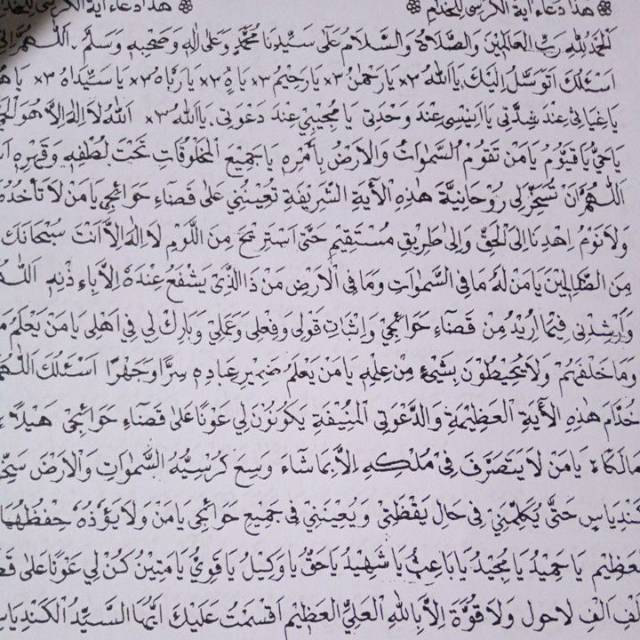 هذا دعاء آية الكرسي للخدام ❊ ❊ هذا دعاء آية الكرسي للخدام
الحمد لله رب العالمين والصلاة والسلام على سيدنا محمد وعلى اله وصحبه وسلم. اللهم اني
اسئلك اتوسل اليك يا الله ×٣ يا رحمن ×٣ يا رحيم ×٣ يا رباه ×٣ يا سيداه ×٣
يا غياثي عند شدتي يا انيسي عند وحدتي يا مجيبي عند دعوتي. يا الله ×٣ الله لا اله الا هو الحي
يا حي يا قيوم يا من تقوم السموات والارض بأمره يا جميع المخلوقات تحت لطفه وقهره
اللهم ان تسخر لي روحانية هذه الآية الشريفة تعينني على قضاء حوائجي يا من لا تأخذه
ولا نوم اهدنا الى الحق والى طريق مستقيم حتى استريح من اللوم لا اله الا انت سبحانك
من الظالمين يا من له ما في السموات وما في الارض من ذا الذي يشفع عنده الا باذنه
وارشدني فيما اريد من قضاء حوائجي واثبات قولي وفعلي وعملي وبارك لي في اهلي يا من يعلم
وما خلفهم ولا يحيطون بشيء من علمه يا من يعلم ضمير عباده سرا وجهرا اسئلك اللهم
خدام هذه الآية العظيمة والدعوتي المنيفة يكونون لي عونا على قضاء حوائجي هيلا
مالكاه يا من لا يتصرف في ملكه الا بما شاء وسع كرسيه السموات والارض
كندياس حتى يكلمني في حال يقظتي ويعينني في جميع حوائجي يا من ولا يؤده حفظهما
العظيم يا حميد يا مجيد يا باعث يا شهيد يا حق يا وكيل يا قوي يا متين كن لي عونا على
الف الف لا حول ولا قوة الا بالله العلي العظيم اقسمت عليك ايها السيد الكندياس